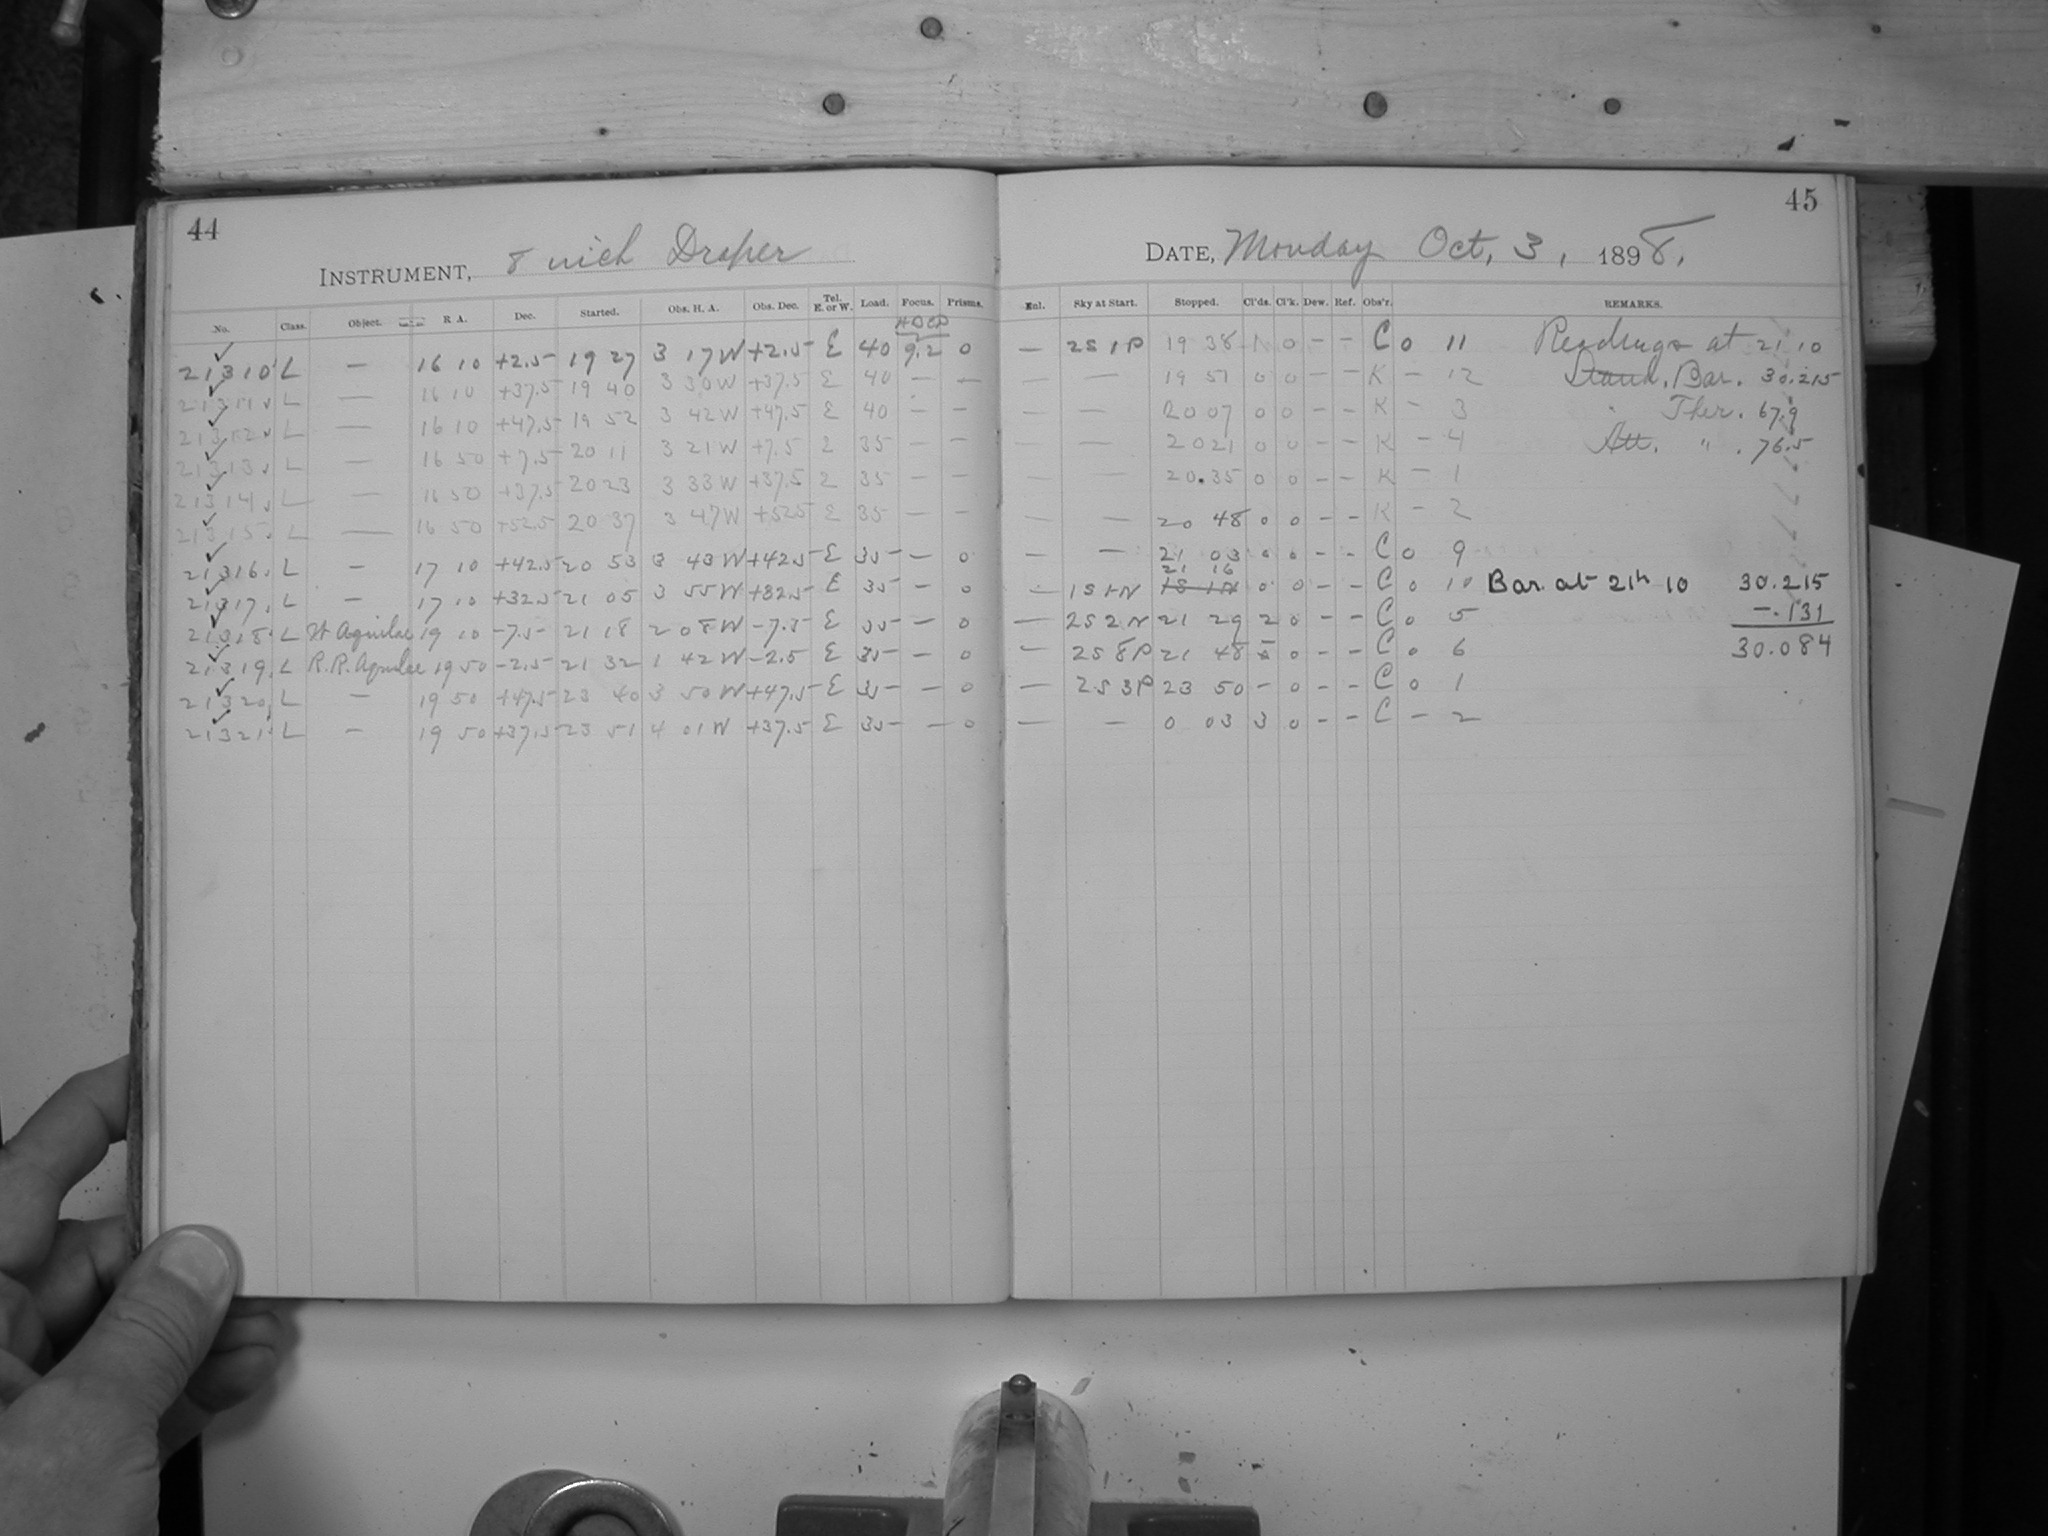 44
INSTRUMENT, 8 inch Draper
No. Class. Object. R A. Dec. Started. Obs. H. A. Obs. Dec. Tel. E. or W. Load. Focus. Prisms.
21310 L — 16 10 +2.5 19 27 3 17W +2.5 E 40 9.2 0
21311 L — 16 10 +37.5 19 40 3 30W +37.5 E 40 — —
21312 L — 16 10 +47.5 19 52 3 42W +47.5 E 40 — —
21313 L — 16 50 +7.5 20 11 3 21W +7.5 E 35 — —
21314 L — 16 50 +37.5 20 23 3 33W +37.5 E 35 — —
21315 L — 16 50 +52.5 20 37 3 47W +52.5 E 35 — —
21316 L — 17 10 +42.5 20 53 3 43W +42.5 E 35 — 0
21317 L — 17 10 +32.5 21 05 3 55W +32.5 E 35 — 0
21318 L Aquilae 19 10 -7.5 21 18 2 08W -7.5 E 35 — 0
21319 L R.R. Aquilae 19 50 -2.5 21 32 1 42W -2.5 E 35 — 0
21320 L — 19 50 +47.5 23 40 3 50W +47.5 E 35 — 0
21321 L — 19 50 +37.5 23 51 4 01W +37.5 E 35 — 0
45
DATE, Monday Oct. 3, 1898.
Enl. Sky at Start. Stopped. Cl'ds. Cl'k. Dew. Ref. Obs'r. REMARKS.
— 2S 1P 19 38 1 0 - - C 0 11 Readings at 21 10
— — 19 51 0 0 - - K - 12 Stand. Bar. 30.215
— — 20 07 0 0 - - K - 3 Ther. 67.9
— — 20 21 0 0 - - K - 4 Att. " . 76.5
— — 20.35 0 0 - - K - 1
— — 20 48 0 0 - - K - 2
— — 21 03 0 0 - - C 0 9
21 16
— 1S 1N 1S 1N 0 0 - - C 0 10 Bar. at 21h 10 30.215
— 2S 2N 21 29 2 0 - - C 0 5 -.131
— 2S 8P 21 48 0 - - C 0 6 30.084
— 2S 3P 23 50 - 0 - - C 0 1
— — 0 03 3 0 - - C - 2